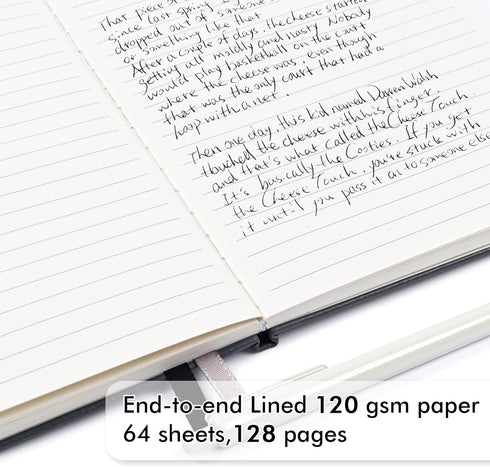 That piece of
since last spring
dropped out of someone
or something like that
After a couple of days, the cheese started
getting all moldly and nasty. Nobody
would play basketball on the court
where the cheese was, even though
that was the only court that had a
hoop with a net.
Then one day, this kid named Darren Walsh
touched the cheese with his finger,
and that's what called the Cheese Touch.
It's basically the Cooties. If you get
the Cheese Touch, you're stuck with
it until you pass it on to someone else
End-to-end Lined 120 gsm paper
64 sheets,128 pages